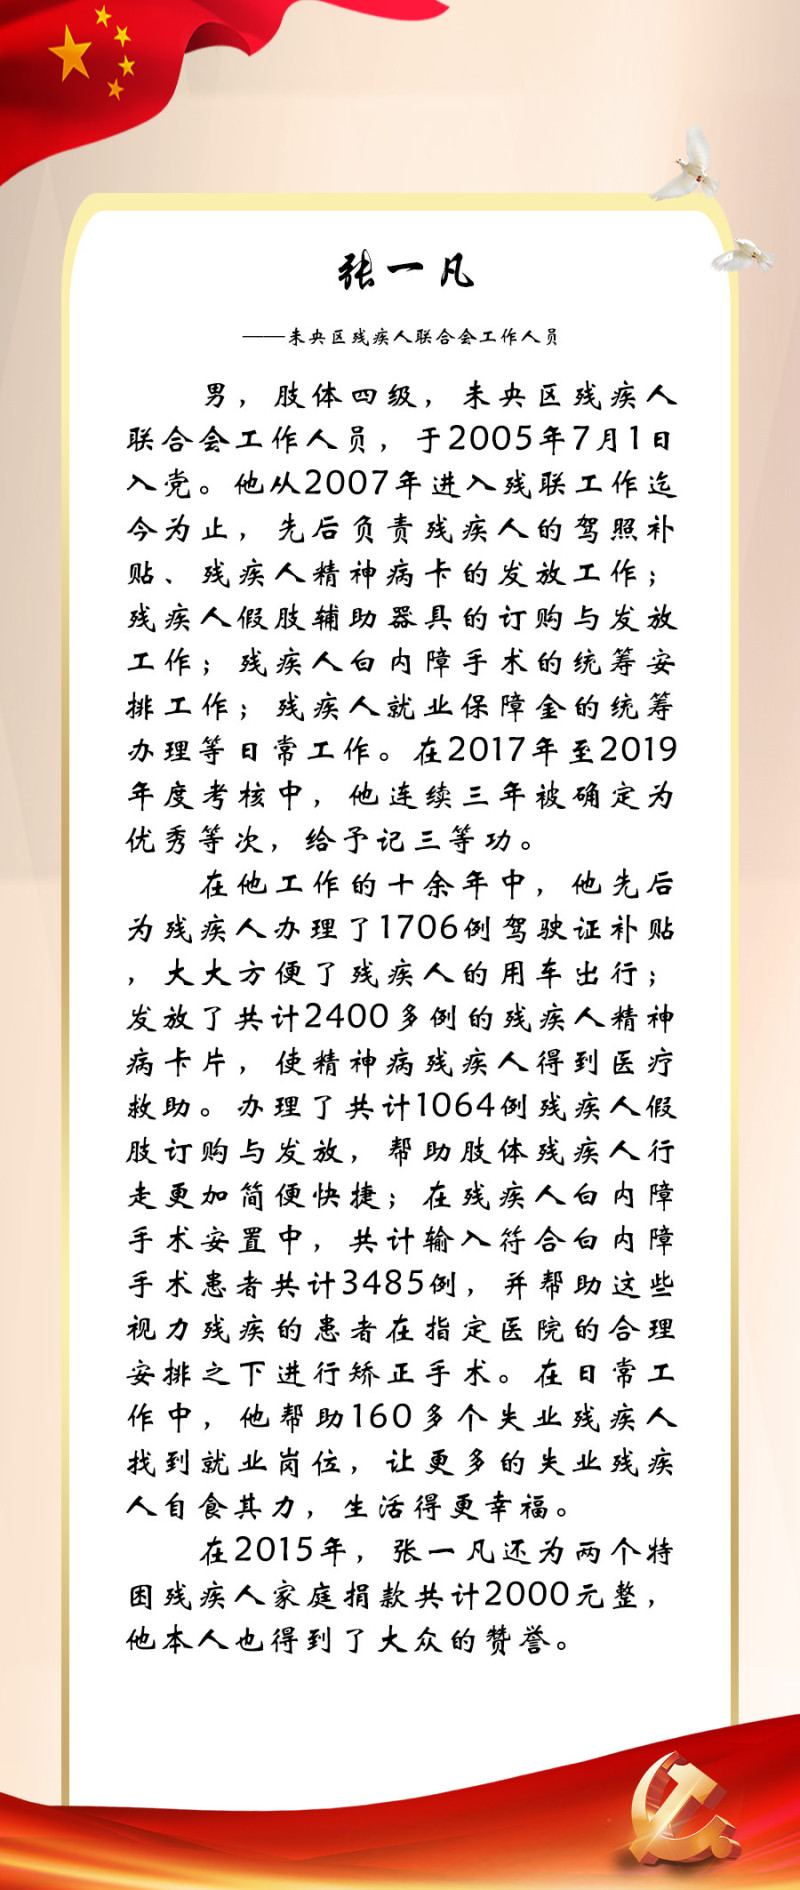 张一凡
——未央区残疾人联合会工作人员
男，肢体四级，未央区残疾人
联合会工作人员，于2005年7月1日
入党。他从2007年进入残联工作迄
今为止，先后负责残疾人的驾照补
贴、残疾人精神病卡的发放工作；
残疾人假肢辅助器具的订购与发放
工作；残疾人白内障手术的统筹安
排工作；残疾人就业保障金的统筹
办理等日常工作。在2017年至2019
年度考核中，他连续三年被确定为
优秀等次，给予记三等功。
在他工作的十余年中，他先后
为残疾人办理了1706例驾驶证补贴
，大大方便了残疾人的用车出行；
发放了共计2400多例的残疾人精神
病卡片，使精神病残疾人得到医疗
救助。办理了共计1064例残疾人假
肢订购与发放，帮助肢体残疾人行
走更加简便快捷；在残疾人白内障
手术安置中，共计输入符合白内障
手术患者共计3485例，并帮助这些
视力残疾的患者在指定医院的合理
安排之下进行矫正手术。在日常工
作中，他帮助160多个失业残疾人
找到就业岗位，让更多的失业残疾
人自食其力，生活得更幸福。
在2015年，张一凡还为两个特
困残疾人家庭捐款共计2000元整，
他本人也得到了大众的赞誉。